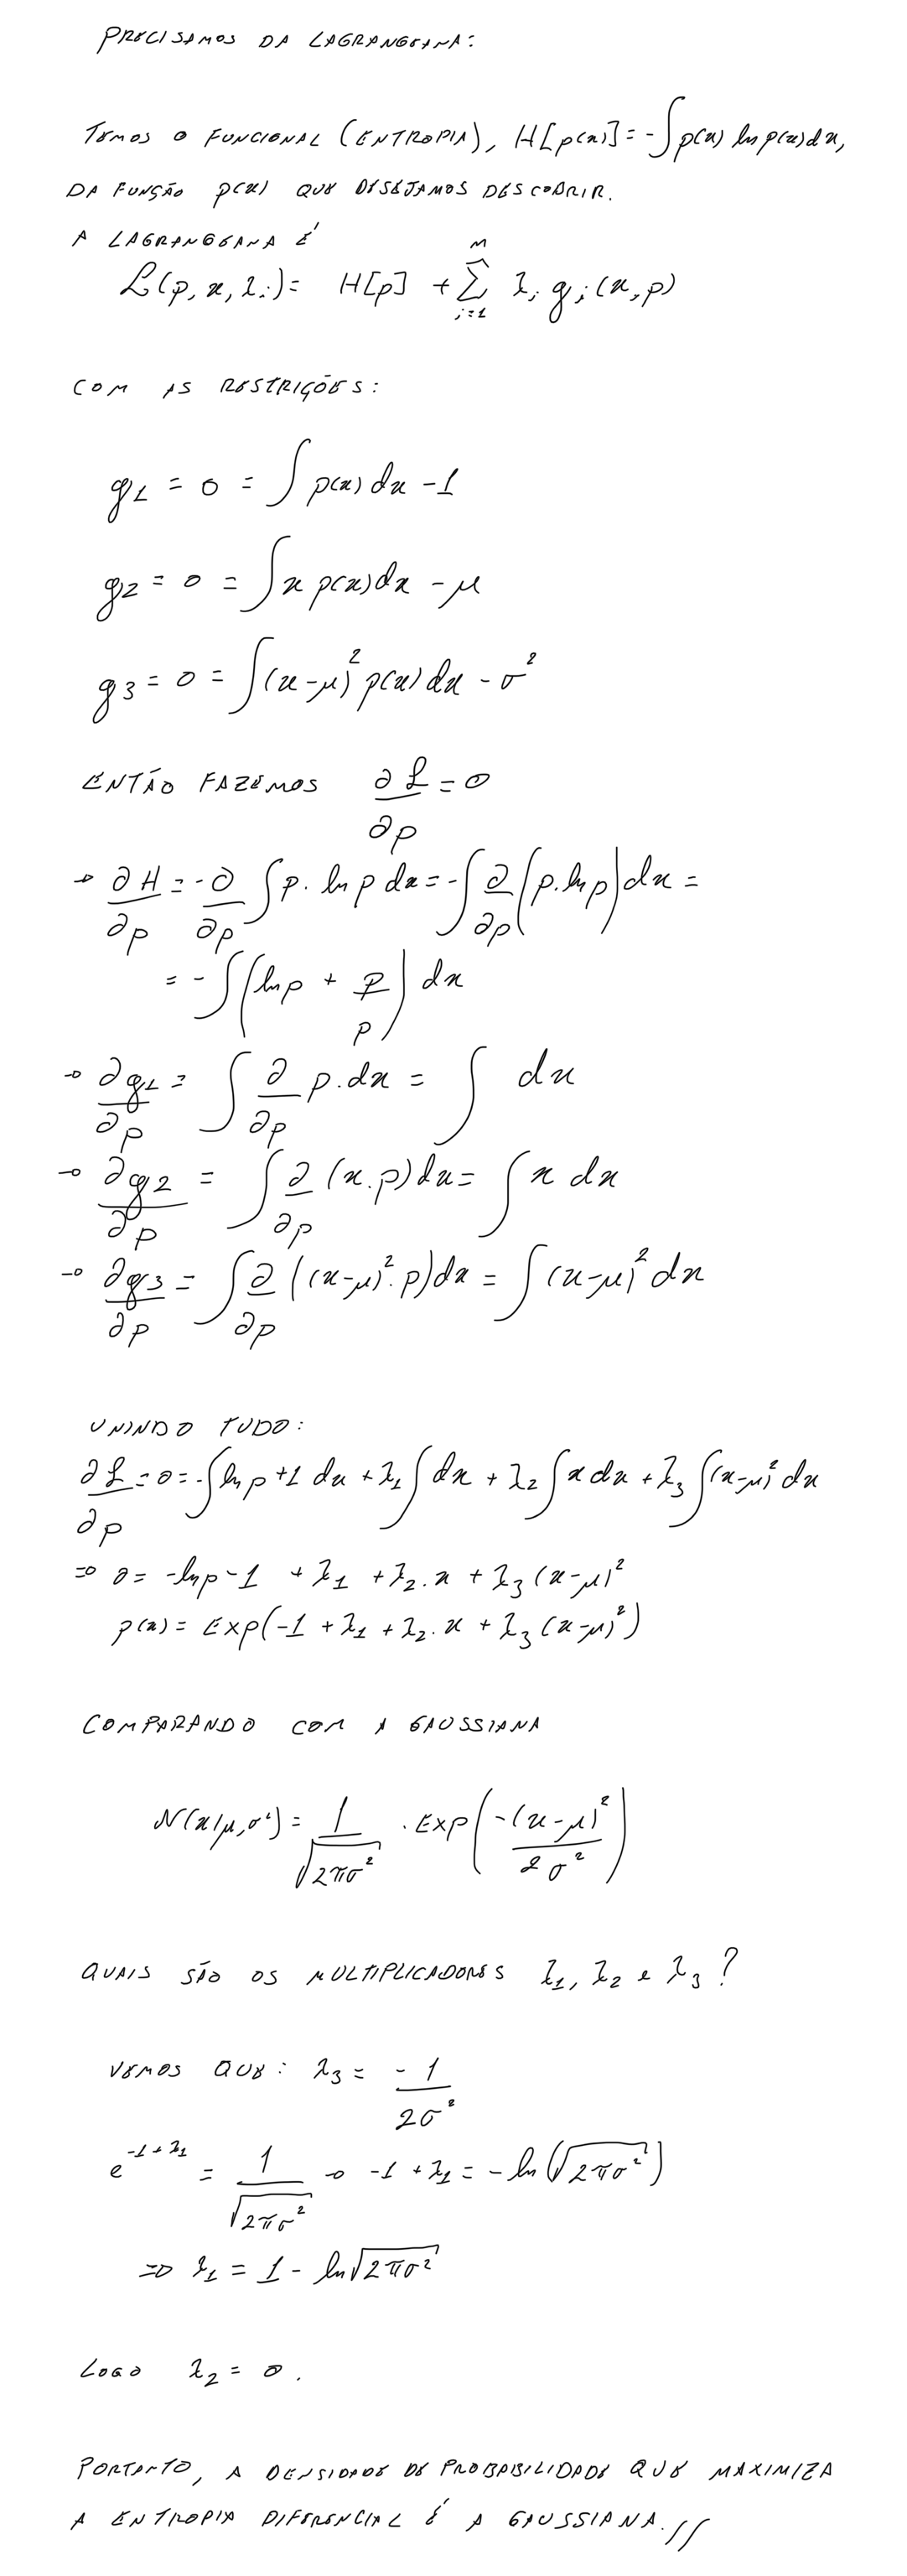 PRECISAMOS DA LAGRANGEANA:
TEMOS O FUNCIONAL (ENTROPIA), H[p(x)] = -∫p(x) ln p(x) dx,
DA FUNÇÃO p(x) QUE DESEJAMOS DESCOBRIR.
A LAGRANGEANA É
ℒ(p, x, λᵢ) = H[p] + Σ_{i=1}^{M} λᵢ gᵢ(x, p)
COM AS RESTRIÇÕES:
g₁ = 0 = ∫ p(x) dx - 1
g₂ = 0 = ∫ x p(x) dx - μ
g₃ = 0 = ∫ (x-μ)² p(x) dx - σ²
ENTÃO FAZEMOS ∂ℒ/∂p = 0
→ ∂H/∂p = -∂/∂p ∫ p. ln p dx = -∫ ∂/∂p (p. ln p) dx =
= -∫ (ln p + p/p) dx
→ ∂g₁/∂p = ∫ ∂/∂p p. dx = ∫ dx
→ ∂g₂/∂p = ∫ ∂/∂p (x.p) dx = ∫ x dx
→ ∂g₃/∂p = ∫ ∂/∂p ((x-μ)². p) dx = ∫ (x-μ)² dx
UNINDO TUDO:
∂ℒ/∂p = 0 = -∫ ln p + 1 dx + λ₁ ∫ dx + λ₂ ∫ x dx + λ₃ ∫ (x-μ)² dx
⇒ 0 = -ln p - 1 + λ₁ + λ₂. x + λ₃ (x-μ)²
p(x) = EXP(-1 + λ₁ + λ₂. x + λ₃ (x-μ)²)
COMPARANDO COM A GAUSSIANA
N(x|μ, σ²) = 1/√(2πσ²) . EXP(-(x-μ)²/2σ²)
QUAIS SÃO OS MULTIPLICADORES λ₁, λ₂ e λ₃ ?
VEMOS QUE: λ₃ = -1/2σ²
e^{-1+λ₁} = 1/√(2πσ²) → -1 + λ₁ = -ln(√(2πσ²))
⇒ λ₁ = 1 - ln√(2πσ²)
LOGO λ₂ = 0.
PORTANTO, A DENSIDADE DE PROBABILIDADE QUE MAXIMIZA
A ENTROPIA DIFERENCIAL É A GAUSSIANA.//